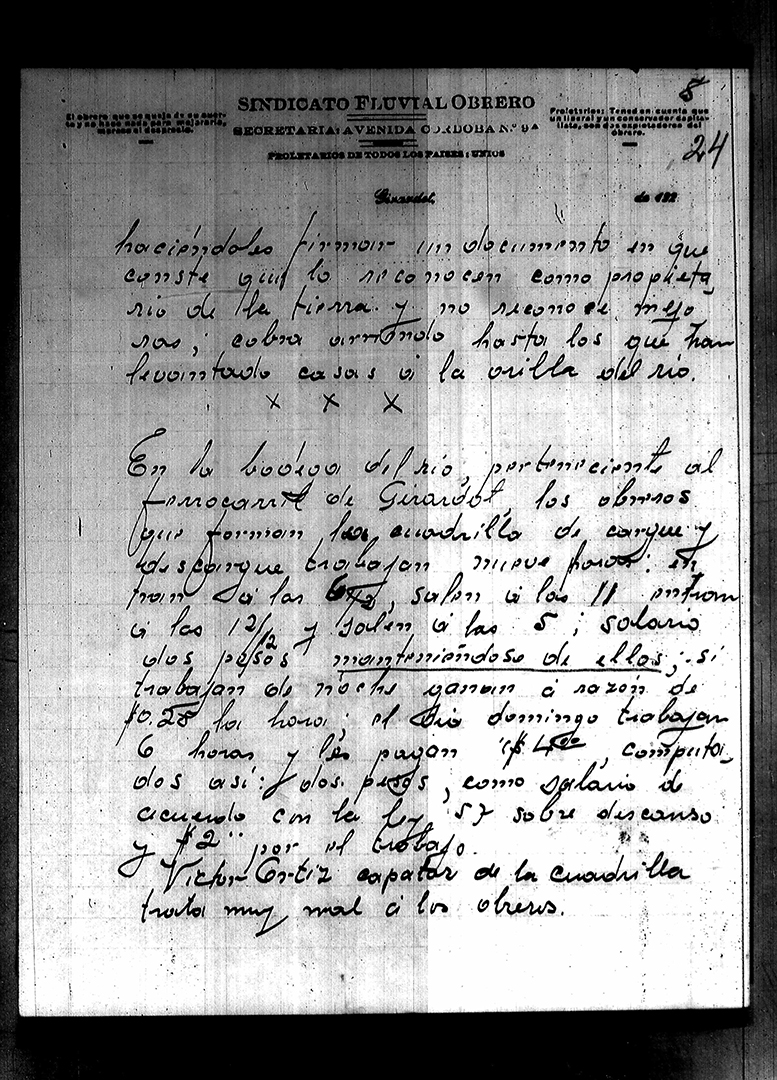 8
SINDICATO FLUVIAL OBRERO
El obrero que se queja de su suer-
te y no hace nada para mejorarla,
merece el desprecio.
Proletarios: Tened en cuenta que
un liberal y un conservador capita-
lista, son dos explotadores del
obrero.
SECRETARIA: AVENIDA CORDOBA N.º 9A
PROLETARIOS DE TODOS LOS PAISES: UNIOS
24
Girardot, de 192
haciéndoles firmar un documento en que
conste que lo reconocen como propieta
rio de la tierra y no reconoce mejo
ras; cobra arriendo hasta los que han
levantado casas á la orilla del río.
x x x
En la bodega del río, perteneciente al
ferrocarril de Girardot, los obreros
que forman la cuadrilla de cargue y
descargue trabajan nueve horas: en
tran á las 6 1/2, salen á las 11 entran
á las 12 1/2 y salen á las 5; salario
dos pesos manteniéndose de ellos; si
trabajan de noche ganan á razón de
$0.28 la hora; el día domingo trabajan
6 horas y les pagan $4.00, computa
dos así: dos pesos, como salario de
acuerdo con la ley 57 sobre descanso
y $2 por el trabajo.
Victor Ortiz capataz de la cuadrilla
trata muy mal á los obreros.